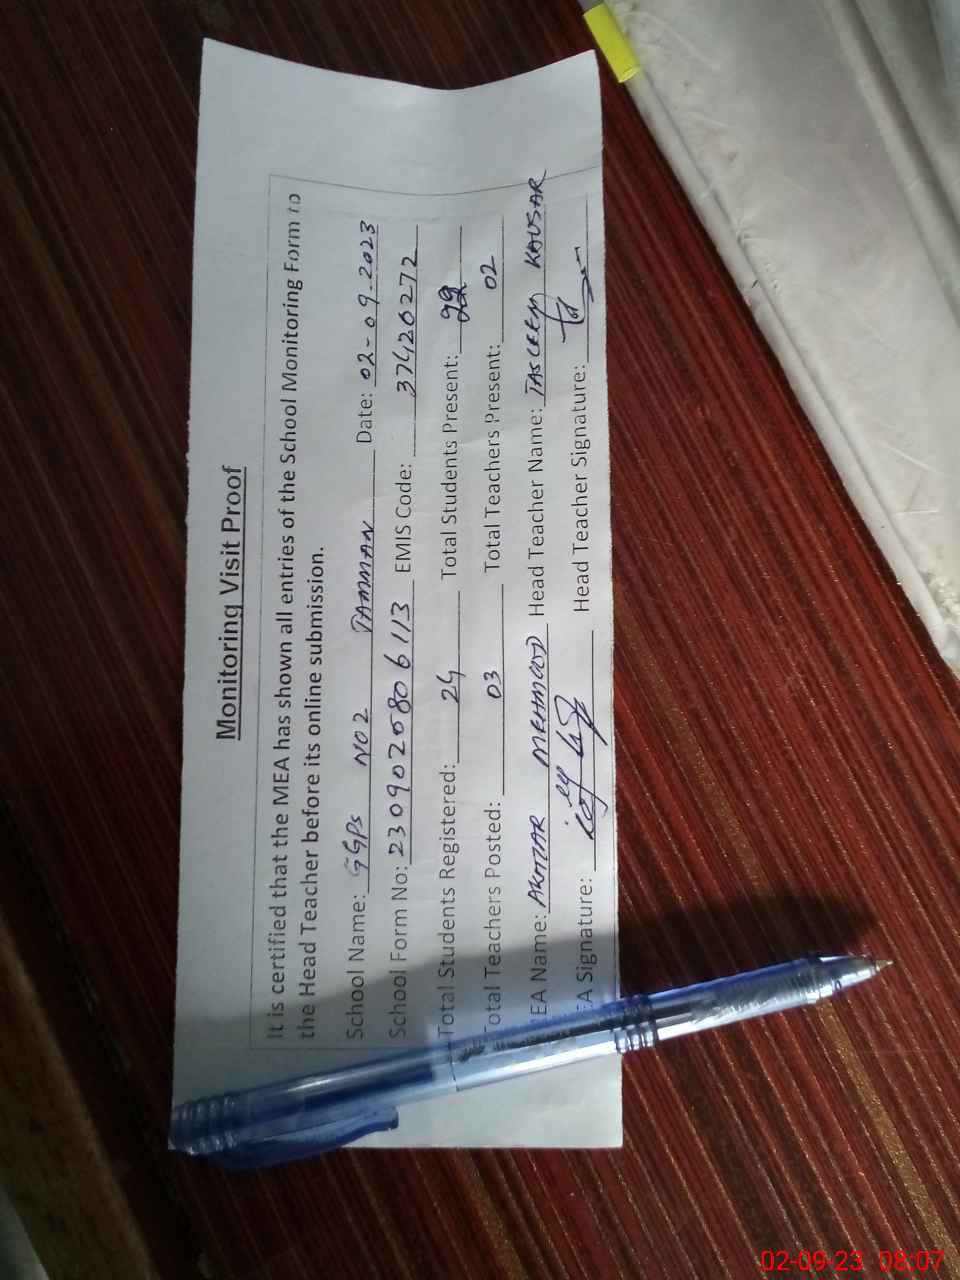 Monitoring Visit Proof
It is certified that the MEA has shown all entries of the School Monitoring Form to
the Head Teacher before its online submission.
School Name: GGPS NO 2 TAMMAN Date: 02-09-2023
School Form No: 2309020806113 EMIS Code: 37420272
Total Students Registered: 24 Total Students Present:
Total Teachers Posted: 03 Total Teachers Present: 02
EA Name: AKHTAR MEHMOOD Head Teacher Name: TASLEEM KAUSAR
EA Signature: Head Teacher Signature:
02-09-23 08:07